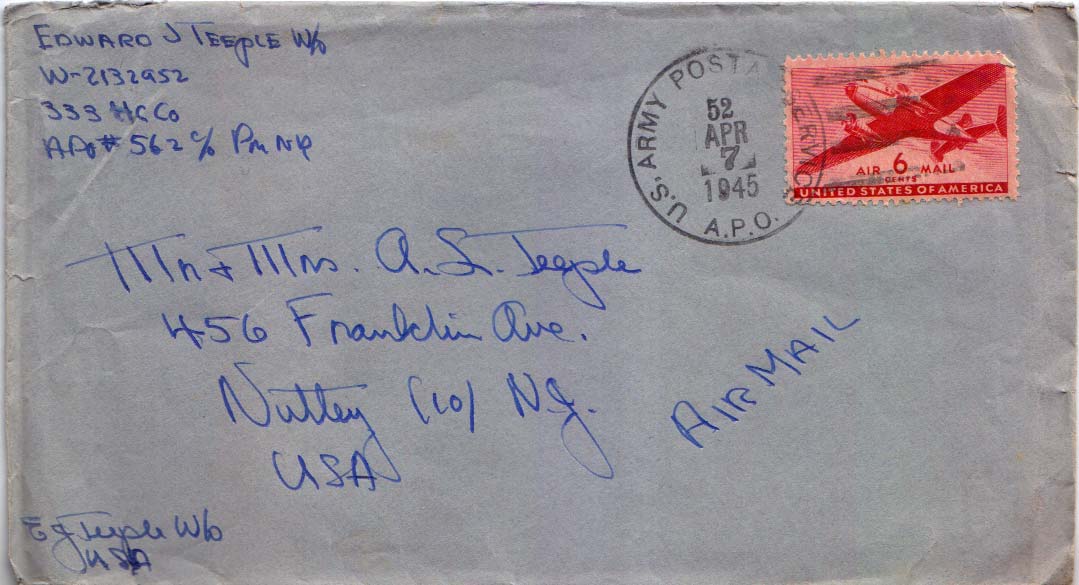 EDWARD J TEEPLE W/O
W-2132952
333 HQ Co
APO # 562 c/o PM NY
U.S. ARMY POSTAL SERVICE
52
APR
7
1945
A.P.O.
AIR 6 MAIL
CENTS
UNITED STATES OF AMERICA
Mr + Mrs. A. L. Teeple
456 Franklin Ave.
Nutley (10) N.J.
USA
AIR MAIL
E J Teeple W/O
USA